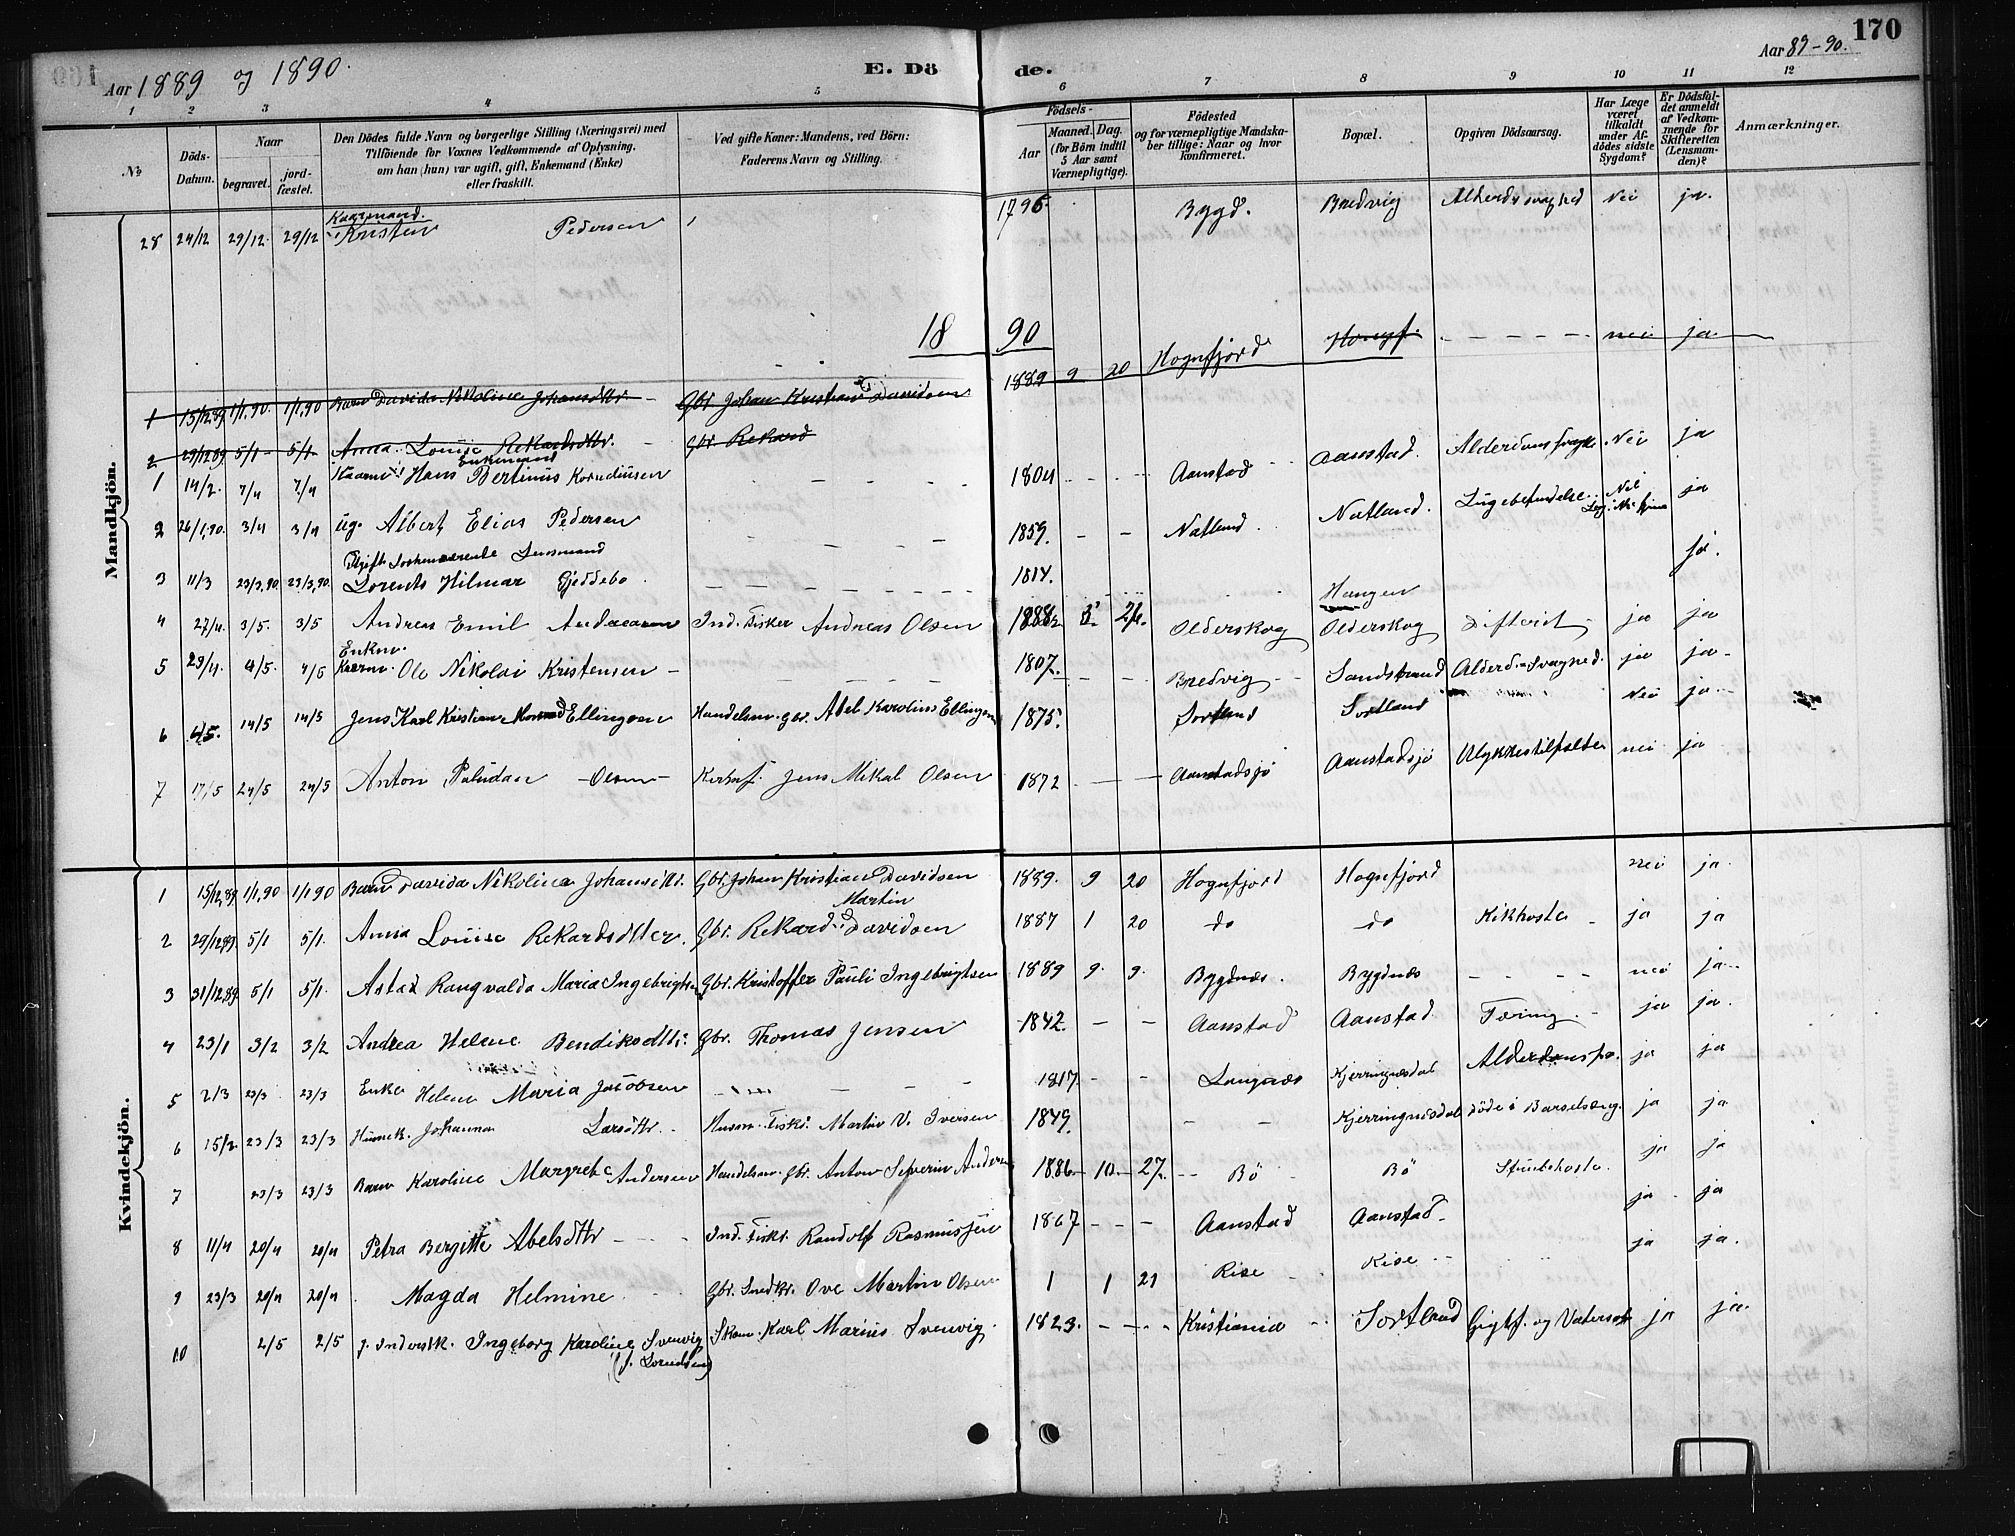 Aar 1889 og 1890.
E. Döde.
Aar 89-90.
170
1 2 3 4 5 6 7 8 9 10 11 12
No
Döds-Datum.
Naar
begravet.
jord-fæstet.
Den Dödes fulde Navn og borgerlige Stilling (Næringsvei) med
Tilföiende for Voxnes Vedkommende af Oplysning,
om han (hun) var ugift, gift, Enkemand (Enke)
eller fraskilt.
Ved gifte Koner: Mandens, ved Börn:
Faderens Navn og Stilling.
Födsels-
Aar
Maaned. Dag.
(for Börn indtil
5 Aar samt
Værnepligtige).
Födested
og for værnepligtige Mandska-
ber tillige: Naar og hvor
konfirmeret.
Bopæl.
Opgiven Dödsaarsag.
Har Læge
været
tilkaldt
under Af-
dödes sidste
Sygdom?
Er Dödsfal-
det anmeldt
af Vedkom-
mende for
Skifteretten
(Lensman-
den)?
Anmærkninger.
Mandkjön.
28 24/12 29/12 29/12 Kaarmand. Kristen Pedersen 1795 Bygd. Bredvig Alderdsvaghed Nei ja.
1890
1 15/12 89 1/1 90 1/1 90 Barn Davida Nikoline Johansdtr Gbr Johan Kristian Davidsen 1889 9 20 Hognfjord Hongf. - - - - nei ja
2 29/12 89 5/1 5/1 Anna Louise Rekardsdtr. Gbr. Rekard
1 14/2 7/4 7/4 Kaarm. Enkemand Hans Bertinus Korneliusen - - - 1804 Aanstad Aanstad. Alderdomssvagh. Nei ja
2 26/1 90. 3/4 3/4 Ug. Albert Elias Pedersen - - 1859. - - Natland. Natland. Ligebefindelse Nei ja
3 11/3 23/3 90 23/3 90. Gift Lensmand Lorents Hilmar Gjeddebo - - - 1814. Haugen ja.
4 27/4. 3/5. 3/5 Andreas Emil Andreasen Ind. Fisker Andreas Olsen 1888 3 26. Olderskog Olderskog Diftrit ja ja
5 29/4 4/5. 4/5 Enkm. Kaarm. Ole Nikolai Kristensen - - - 1807. - - Bredvig Sandstrand Alderd.-Svaghed. ja ja
6 6/5. 14/5 14/5 Jens Karl Kristian Ellingsen Handelsm. gbr. Abel Karolius Ellingsen 1875. Sortland Sortland Nei ja
7 17/5 24/5 24/5 Anton Paludan Olsen Jens Mikal Olsen 1872 - - Aanstadsjö Aanstadsjö Ulykkestilfælde nei ja
Kvindekjön.
1 15/12 89 1/1 90 1/1 90 Barn Davida Nikolina Johansdtr. Gbr. Johan Kristian Davidsen 1889. 9 20 Hognfjord Hognfjord nei ja
2 29/12 89. 5/1 5/1. Anna Louise Rekardsdtter. Gbr. Rekard Martin Davidsen 1887 1 20 do do Kikhoste ja ja
3 31/12 89 5/1 5/1. Astad Rangvalda Maria Ingebrigtsen Gbr. Kristoffer Pauli Ingebrigtsen 1889 9. 9. Bygdnæs. Bygdnæs - - - - nei ja
4 23/1 3/2 3/2 Andrea Helene Bendiksdtr. Gbr. Thomas Jensen 1842. - - Aanstad Aanstad Tæring. ja ja.
5 2/3 23/3 23/3 Enke Helene Maria Jacobsen - - - 1817 - - Langnæs Kjerringnesdal ja ja
6 15/2 23/3 23/3 Johanna Larsdtr. Husm. Fisk. Martin V. Iversen 1849. - - Kjerringnesdal döde i Barselseng. ja ja
7 23/3 23/3 Barn Karoline Margrethe Andersen Handelsm. Gbr. Anton Severin Andersen 1886 10 27. - Bö Bö Strubehoste. ja ja
8 11/4 20/4 20/4 Petra Bergitte Abelsdtr - - Ind. Fiskr. Randolf Rasmussen 1867 - - Aanstad Aanstad ja ja
9 23/3 20/4 20/4 Magda Helmine Gbr. Smedkr. Ove Martin Olsen 1 1 21 Rise Rise ja ja.
10 2/5 2/5 Ingeborg Karoline Svenvig Karl Marius Svenvig. 1823. - - Kristiania Sortland Gigtf. og Vatersot ja ja.